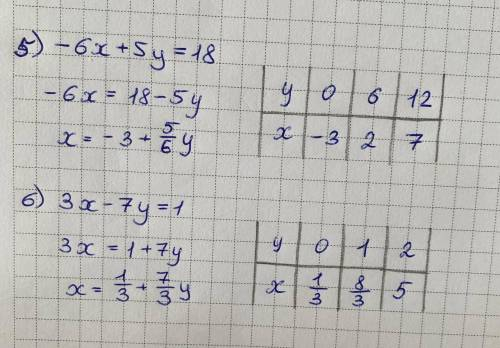 5) -6x+5y=18
-6x = 18-5y
x = -3 + 5/6 y
y 0 6 12
x -3 2 7
6) 3x-7y=1
3x = 1+7y
x = 1/3 + 7/3 y
y 0 1 2
x 1/3 8/3 5